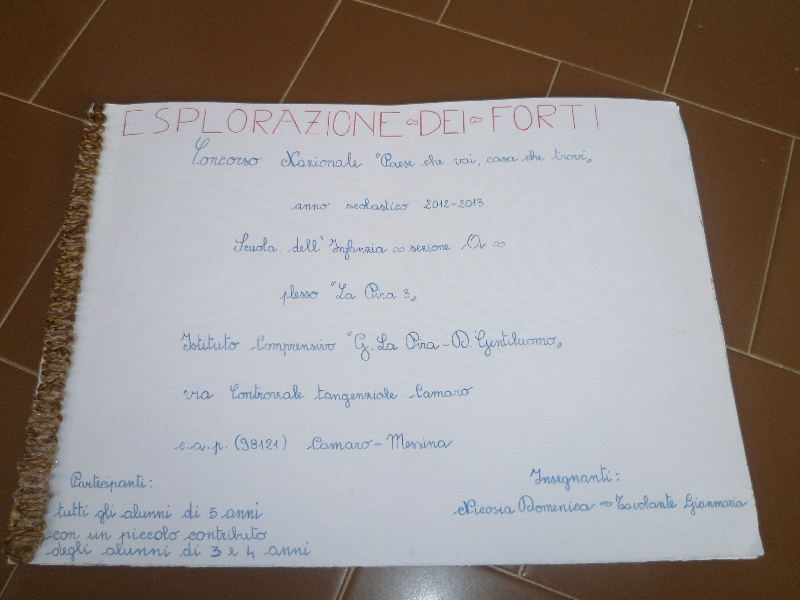 ESPLORAZIONE ~ DEI ~ FORTI
Concorso Nazionale "Paese che vai, casa che trovi"
anno scolastico 2012-2013
Scuola dell'Infanzia ~ sezione A ~
plesso "La Pira 3"
Istituto Comprensivo "G. La Pira - D. Gentiluomo"
via Controviale tangenziale Camaro
c.a.p. (98121) Camaro - Messina
Participanti:
tutti gli alunni di 5 anni
con un piccolo contributo
degli alunni di 3 e 4 anni
Insegnanti:
Nicosia Domenica ~ Tavolante Gianmaria